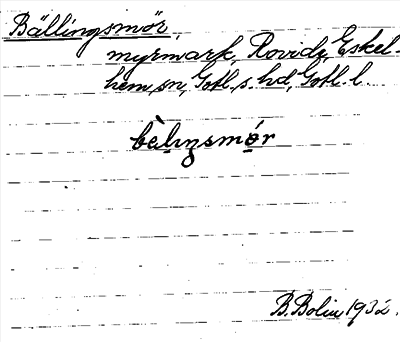 Bällingsmör,
myrmark, Rovide, Eskel-
hem sn, Gotl. s. hd, Gotl. l.
bèlıŋsmór
B. Bolin 1932.